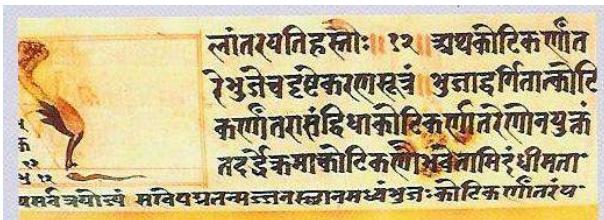 लांतरयतिहस्तोः॥१२॥अथकोटिकर्णांत
रेभुजेचदृष्टेकरणसूत्रं॥भुजाद्वर्गितात्कोटि
कर्णांतराप्तंद्विधाकोटिकर्णांतरेणोनयुक्तं
तदर्द्धेक्रमात्कोटिकर्णौभवेतामिदंधीमता
यसर्वत्रयोज्यं सखेपद्मतन्मज्जनस्थानमध्यंभुजःकोटिकर्णांतरंप